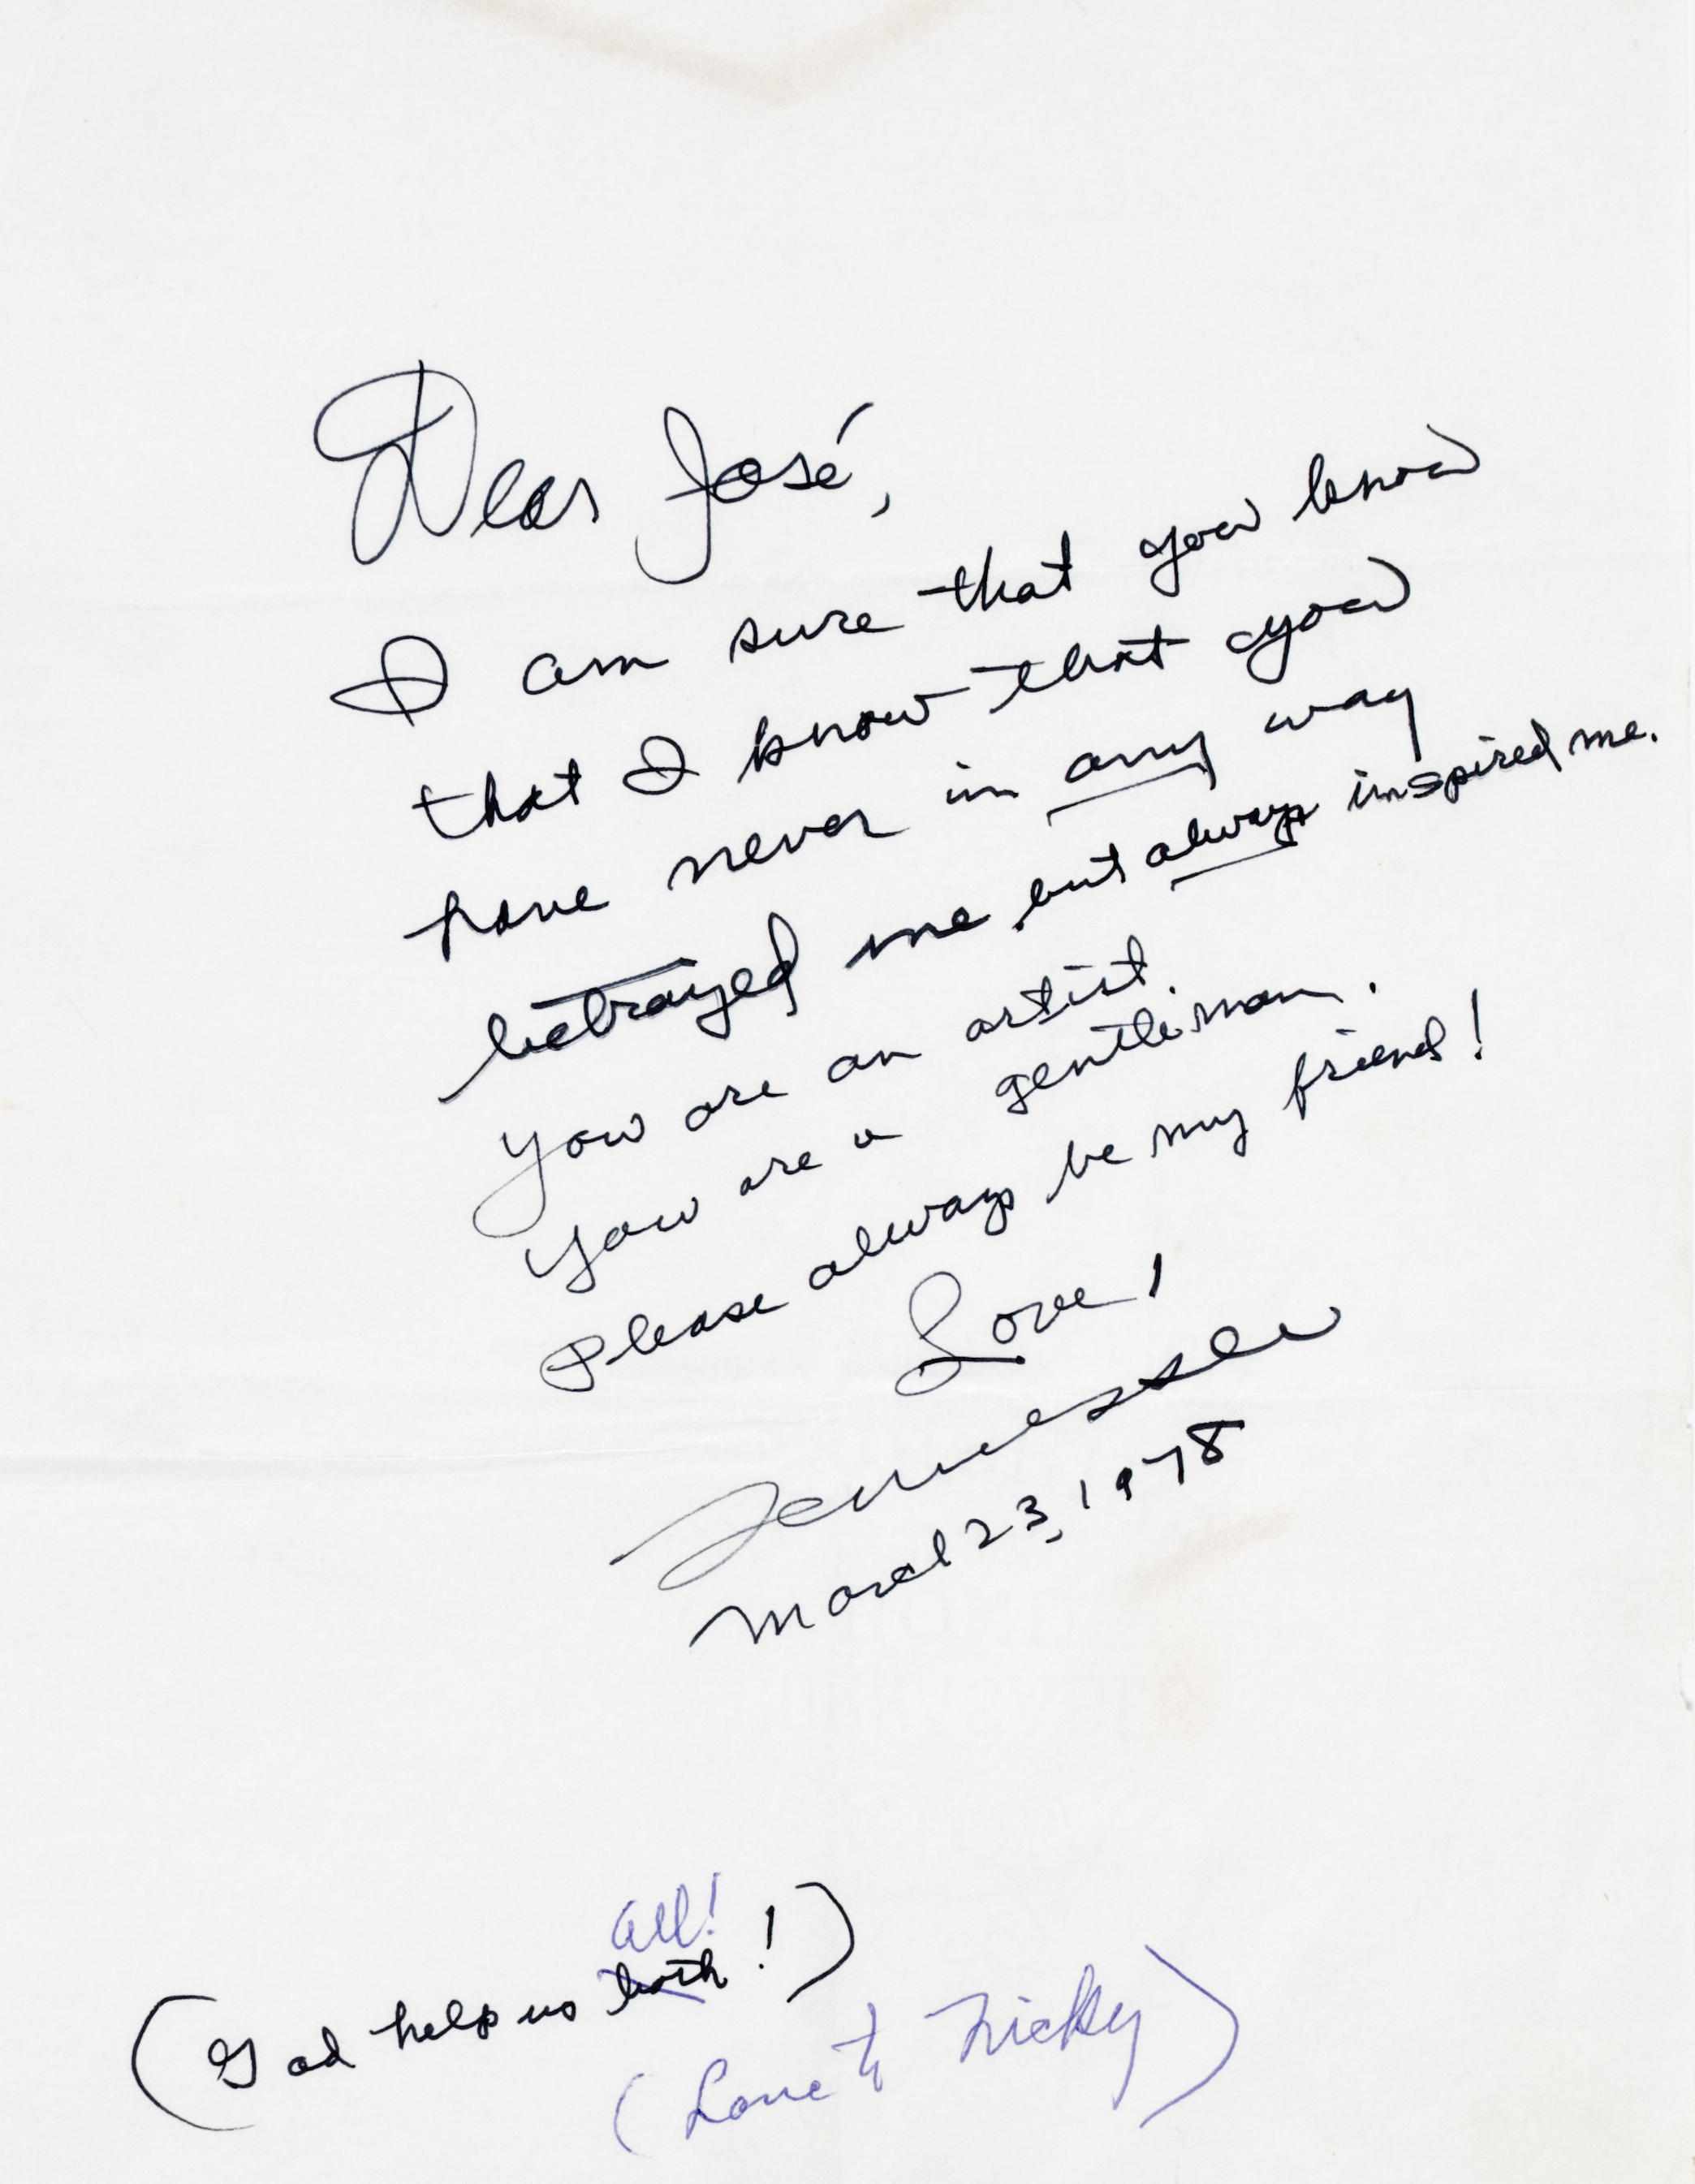 Dear José,
I am sure that you know
that I know that you
have never in any way
betrayed me, but always inspired me.
You are an artist.
You are a gentleman.
Please always be my friend!
Love,
Tennessee
March 23, 1978
all!
(God help us both!)
(Love to Nicky)